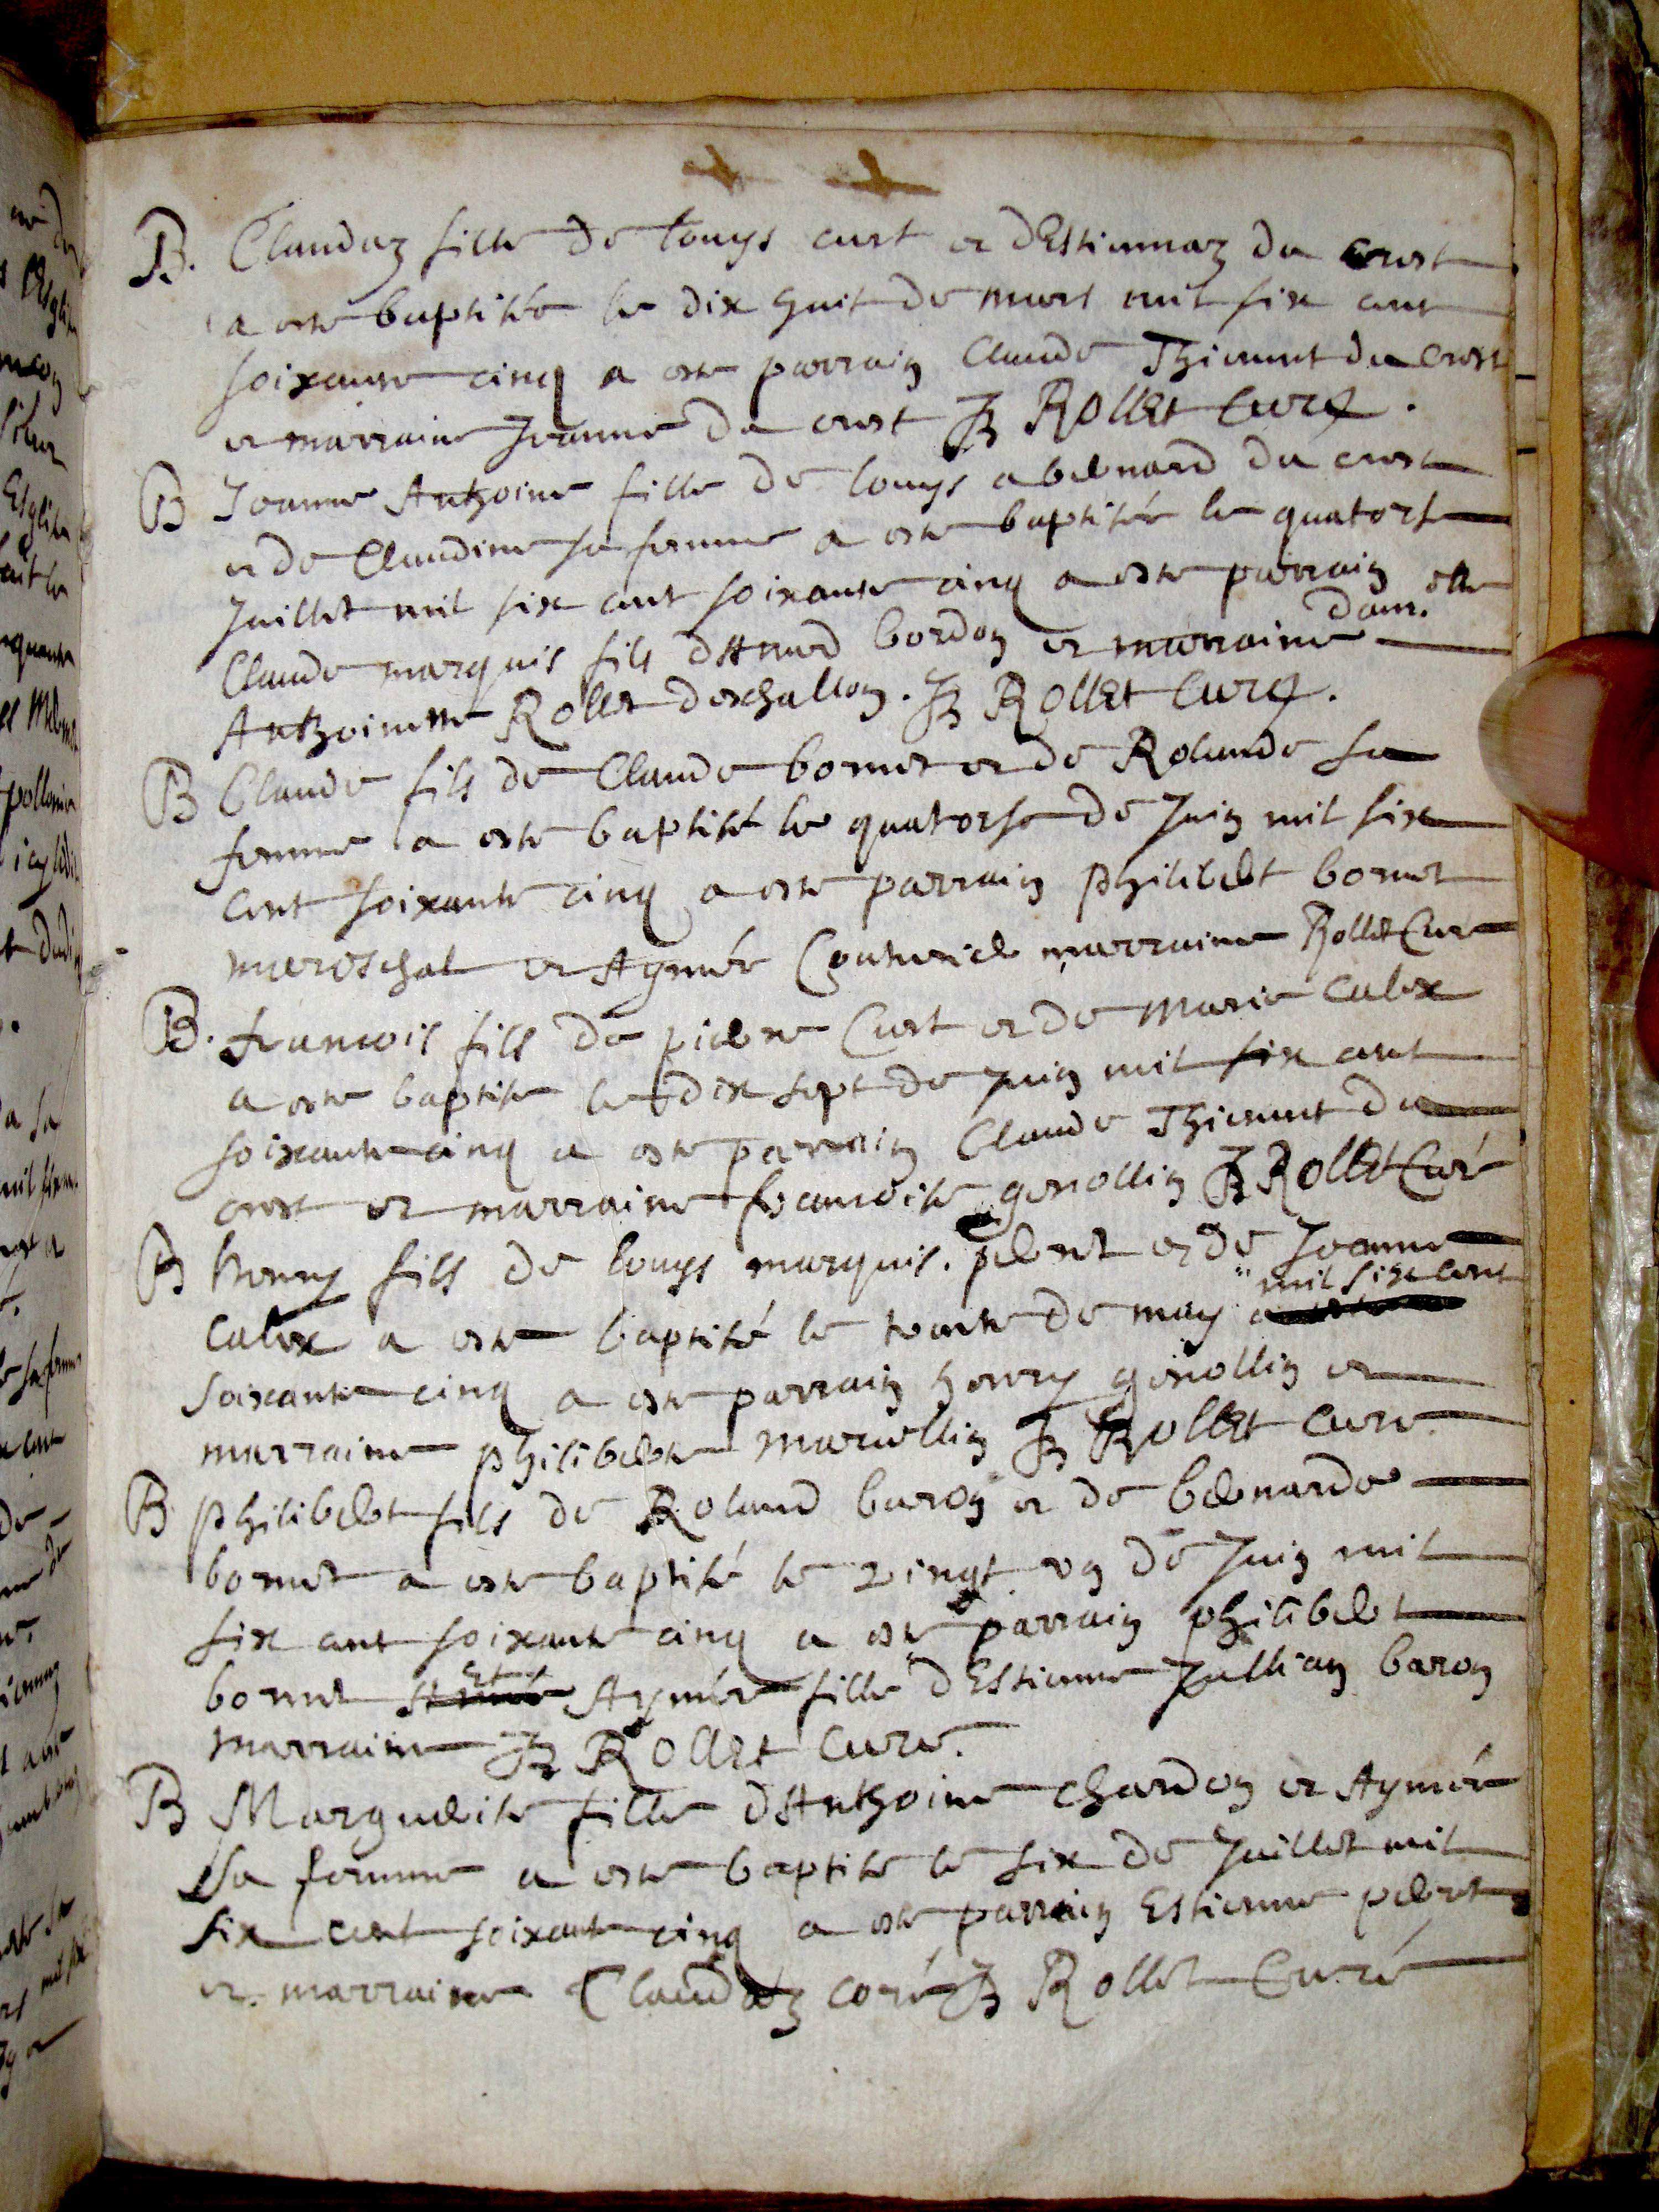 B. Claudaz fille de louys curt et dEstiennaz du crest
a este baptisée le dix huit de mars mil six cent
soixante cinq a este parrain Claude Thiennet du crest
et marraine Jeanne du crest JB Rollet Curé.
B Jeanne Anthoine fille de louys abernard du crest
et de Claudine sa femme a este baptisée le quatorse
Juillet mil six cent soixante cinq a este parrain
Claude marquis fils dAmed bordon et marraine dam.elle
Anthoinette Rollet deschallon. JB Rollet Curé.
B Claude fils de Claude bornet et de Rolande sa
femme a este baptisé le quatorse de Juin mil six
cent soixante cinq a este parrain philibert bornet
mareschal et Aymée marraine Rollet Curé
B. francois fils de pierre Curt et de Marie Calex
a este baptise le dix sept de Juin mil six cent
soixante cinq a este parrain Claude Thiennet du
crest et marraine francoise genollin JB Rollet Curé
B henry fils de louys marquis. pernet et de Jeanne
Calex a este baptisé le trente de may mil six cent
soixante cinq a este parrain henry genollin et
marraine philiberte marcellin JB Rollet Curé.
B philibert fils de Roland baron et de bernarde
bornet a este baptisé le vingt vn de Juin mil
six cent soixante cinq a este parrain philibert
bornet et Aymée fille dEstienne Jullian baron
marraine JB Rollet Curé.
B Marguerite fille dAnthoine chardon et Aymée
sa femme a este baptise le six de Juillet mil
six cent soixante cinq a este parrain Estienne pernet
et marraine Claudaz coré JB Rollet Curé